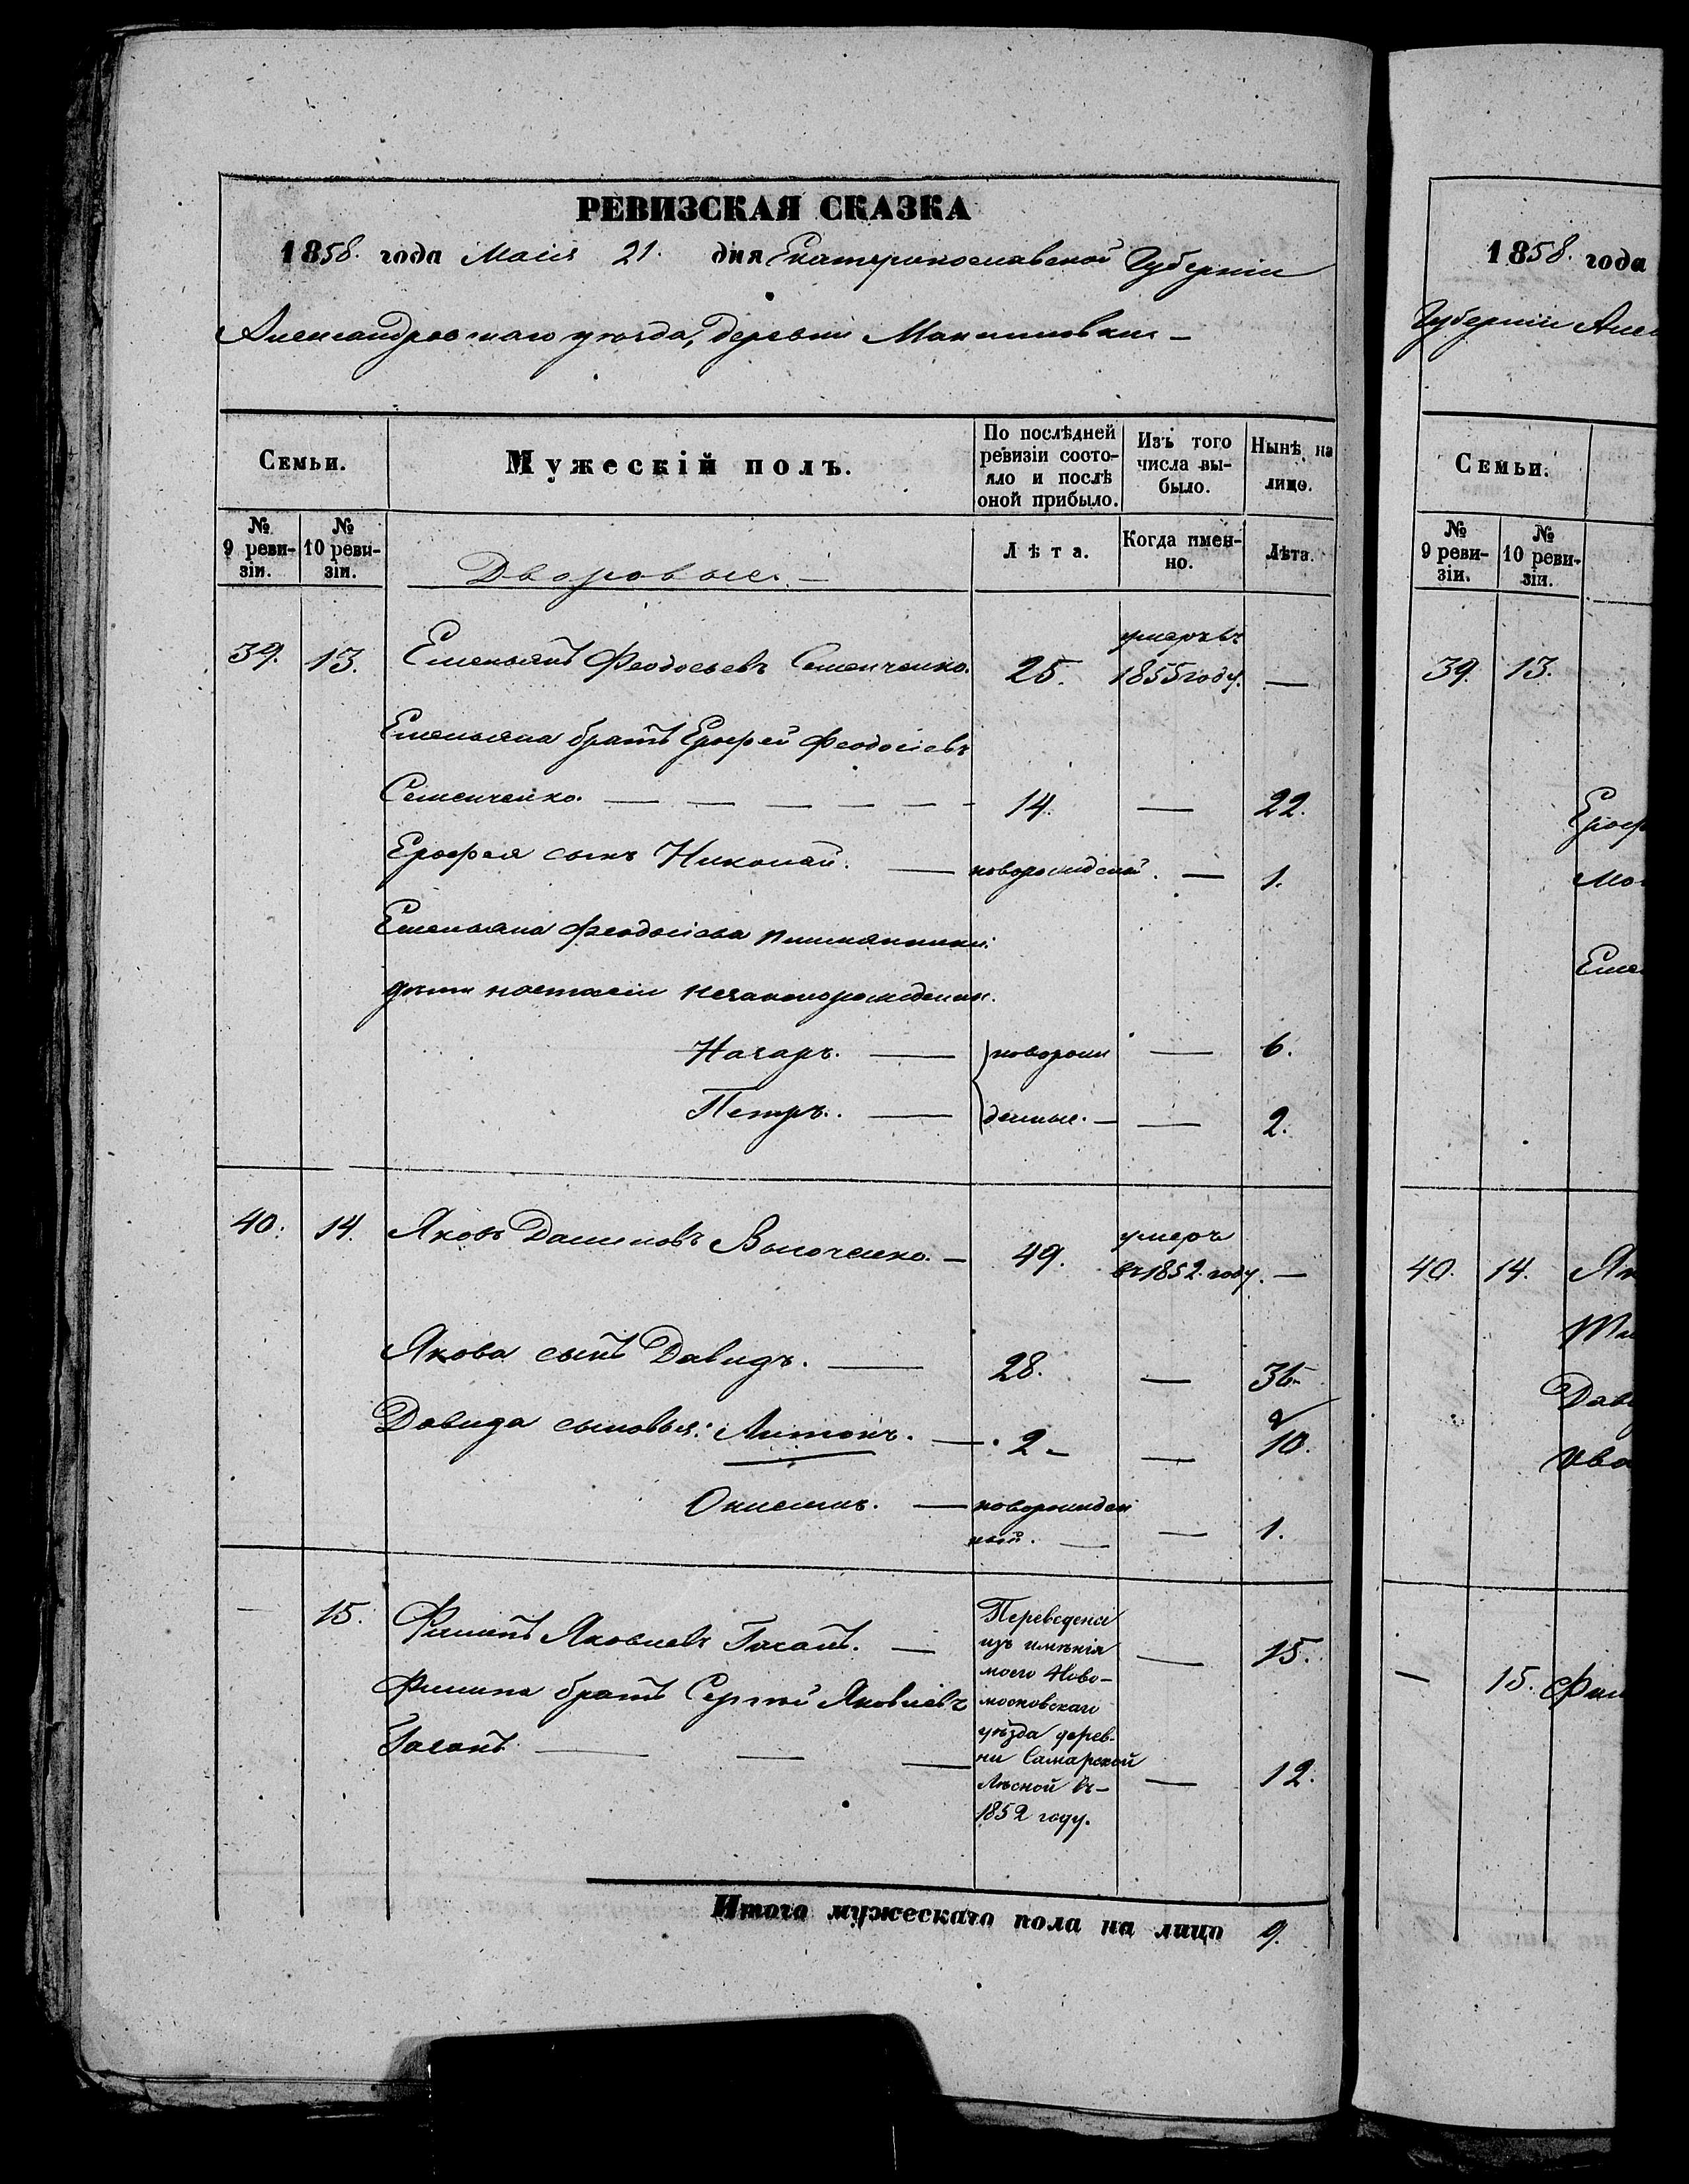 РЕВИЗСКАЯ СКАЗКА
1858. года Маія 21. дня Екатеринославской Губерніи
Александровскаго уѣзда, деревни
Семьи.
Мужескій полъ.
По послѣдней ревизіи состояло и послѣ оной прибыло.
Изъ того числа выбыло.
Нынѣ на лицо.
№ 9 ревизіи.
№ 10 ревизіи.
Дворовые. —
Лѣта.
Когда именно.
Лѣта.
39. 13. Емельянъ Феодосьевъ Семенченко. 25. умеръ въ 1855 году. —
Емельяна братъ Ерофей Феодосіевъ
Семенченко. — — — — — — 14. — 22.
Ерофея сынъ Николай. — новорожденный. — 1.
Емельяна Феодосіева племянники:
дѣти Настасіи незаконорожденныя.
Назаръ. — новорож — 6.
Петръ. — денные. — — 2.
40. 14. Яковъ Даниловъ — 49. умеръ въ 1852. году. —
Якова сынъ Давидъ. — 28. — 36.
Давида сыновья: Антонъ. — 2 — — 10.
Онисимъ. — новорожден
ный. — — 1.
— 15. Филипъ Яковлевъ — — 15.
Филипа братъ Сергѣй Яковлевъ
— — — — 12.
Переведены
изъ имѣнія
моего Ново-
московскаго
уѣзда дерев-
ни Самарской
Лѣсной въ
1852 году.
Итого мужескаго пола на лицо 9.
1858. года
Губерніи
Семьи.
№ 9 ревизіи.
№ 10 ревизіи.
39. 13.
Ероф
Еме
40. 14. Як
Дави
Ива
— 15. Фил